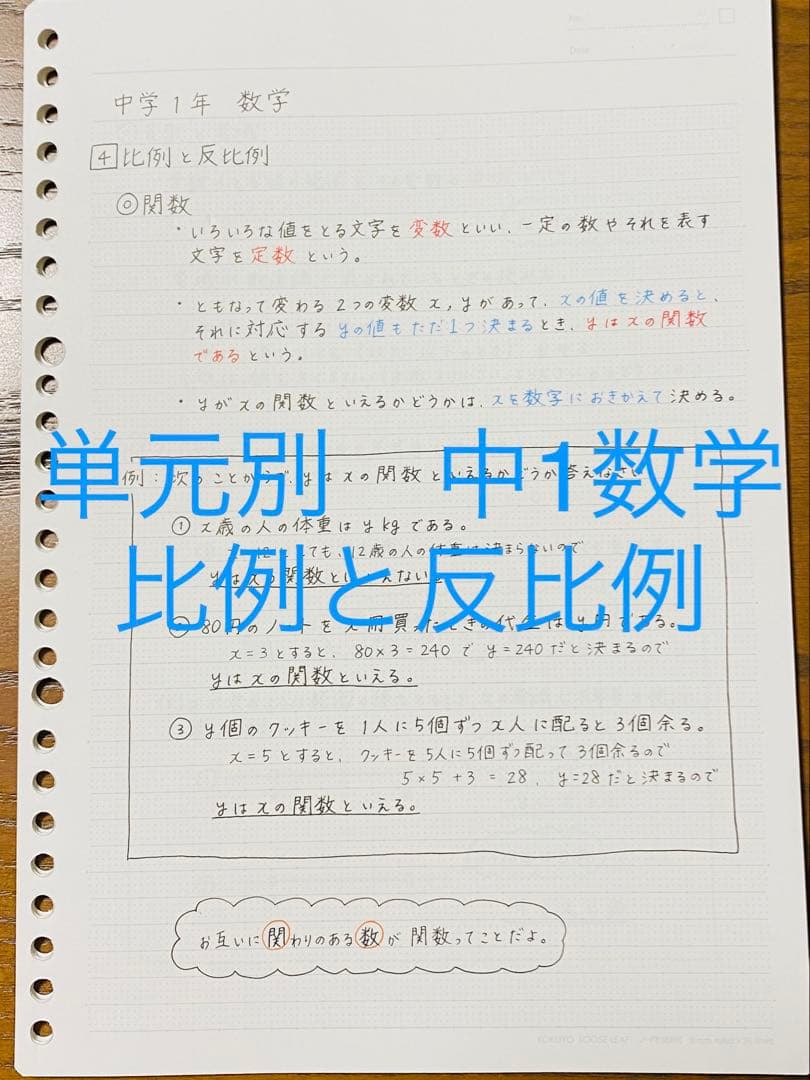 No.
Date
中学1年 数学
4 比例と反比例
◎関数
・いろいろな値をとる文字を変数といい、一定の数やそれを表す
文字を定数という。
・ともなって変わる2つの変数x,yがあって、xの値を決めると、
それに対応するyの値もただ1つ決まるとき、yはxの関数
であるという。
・yがxの関数といえるかどうかは、xを数字におきかえて決める。
単元別 中1数学
例:次のことがらで、yはxの関数といえるかどうか答えなさい
① x歳の人の体重はykgである。
12歳の人の体重は決まらないので
yはxの関数といえない
比例と反比例
② 80円のノートをx冊買ったときの代金はy円である。
x=3とすると、80×3=240でy=240だと決まるので
yはxの関数といえる。
③ y個のクッキーを1人に5個ずつx人に配ると3個余る。
x=5とすると、クッキーを5人に5個ずつ配って3個余るので
5×5+3=28、y=28だと決まるので
yはxの関数といえる。
お互いに関わりのある数が関数ってことだよ。
KOKUYO LOOSE-LEAF